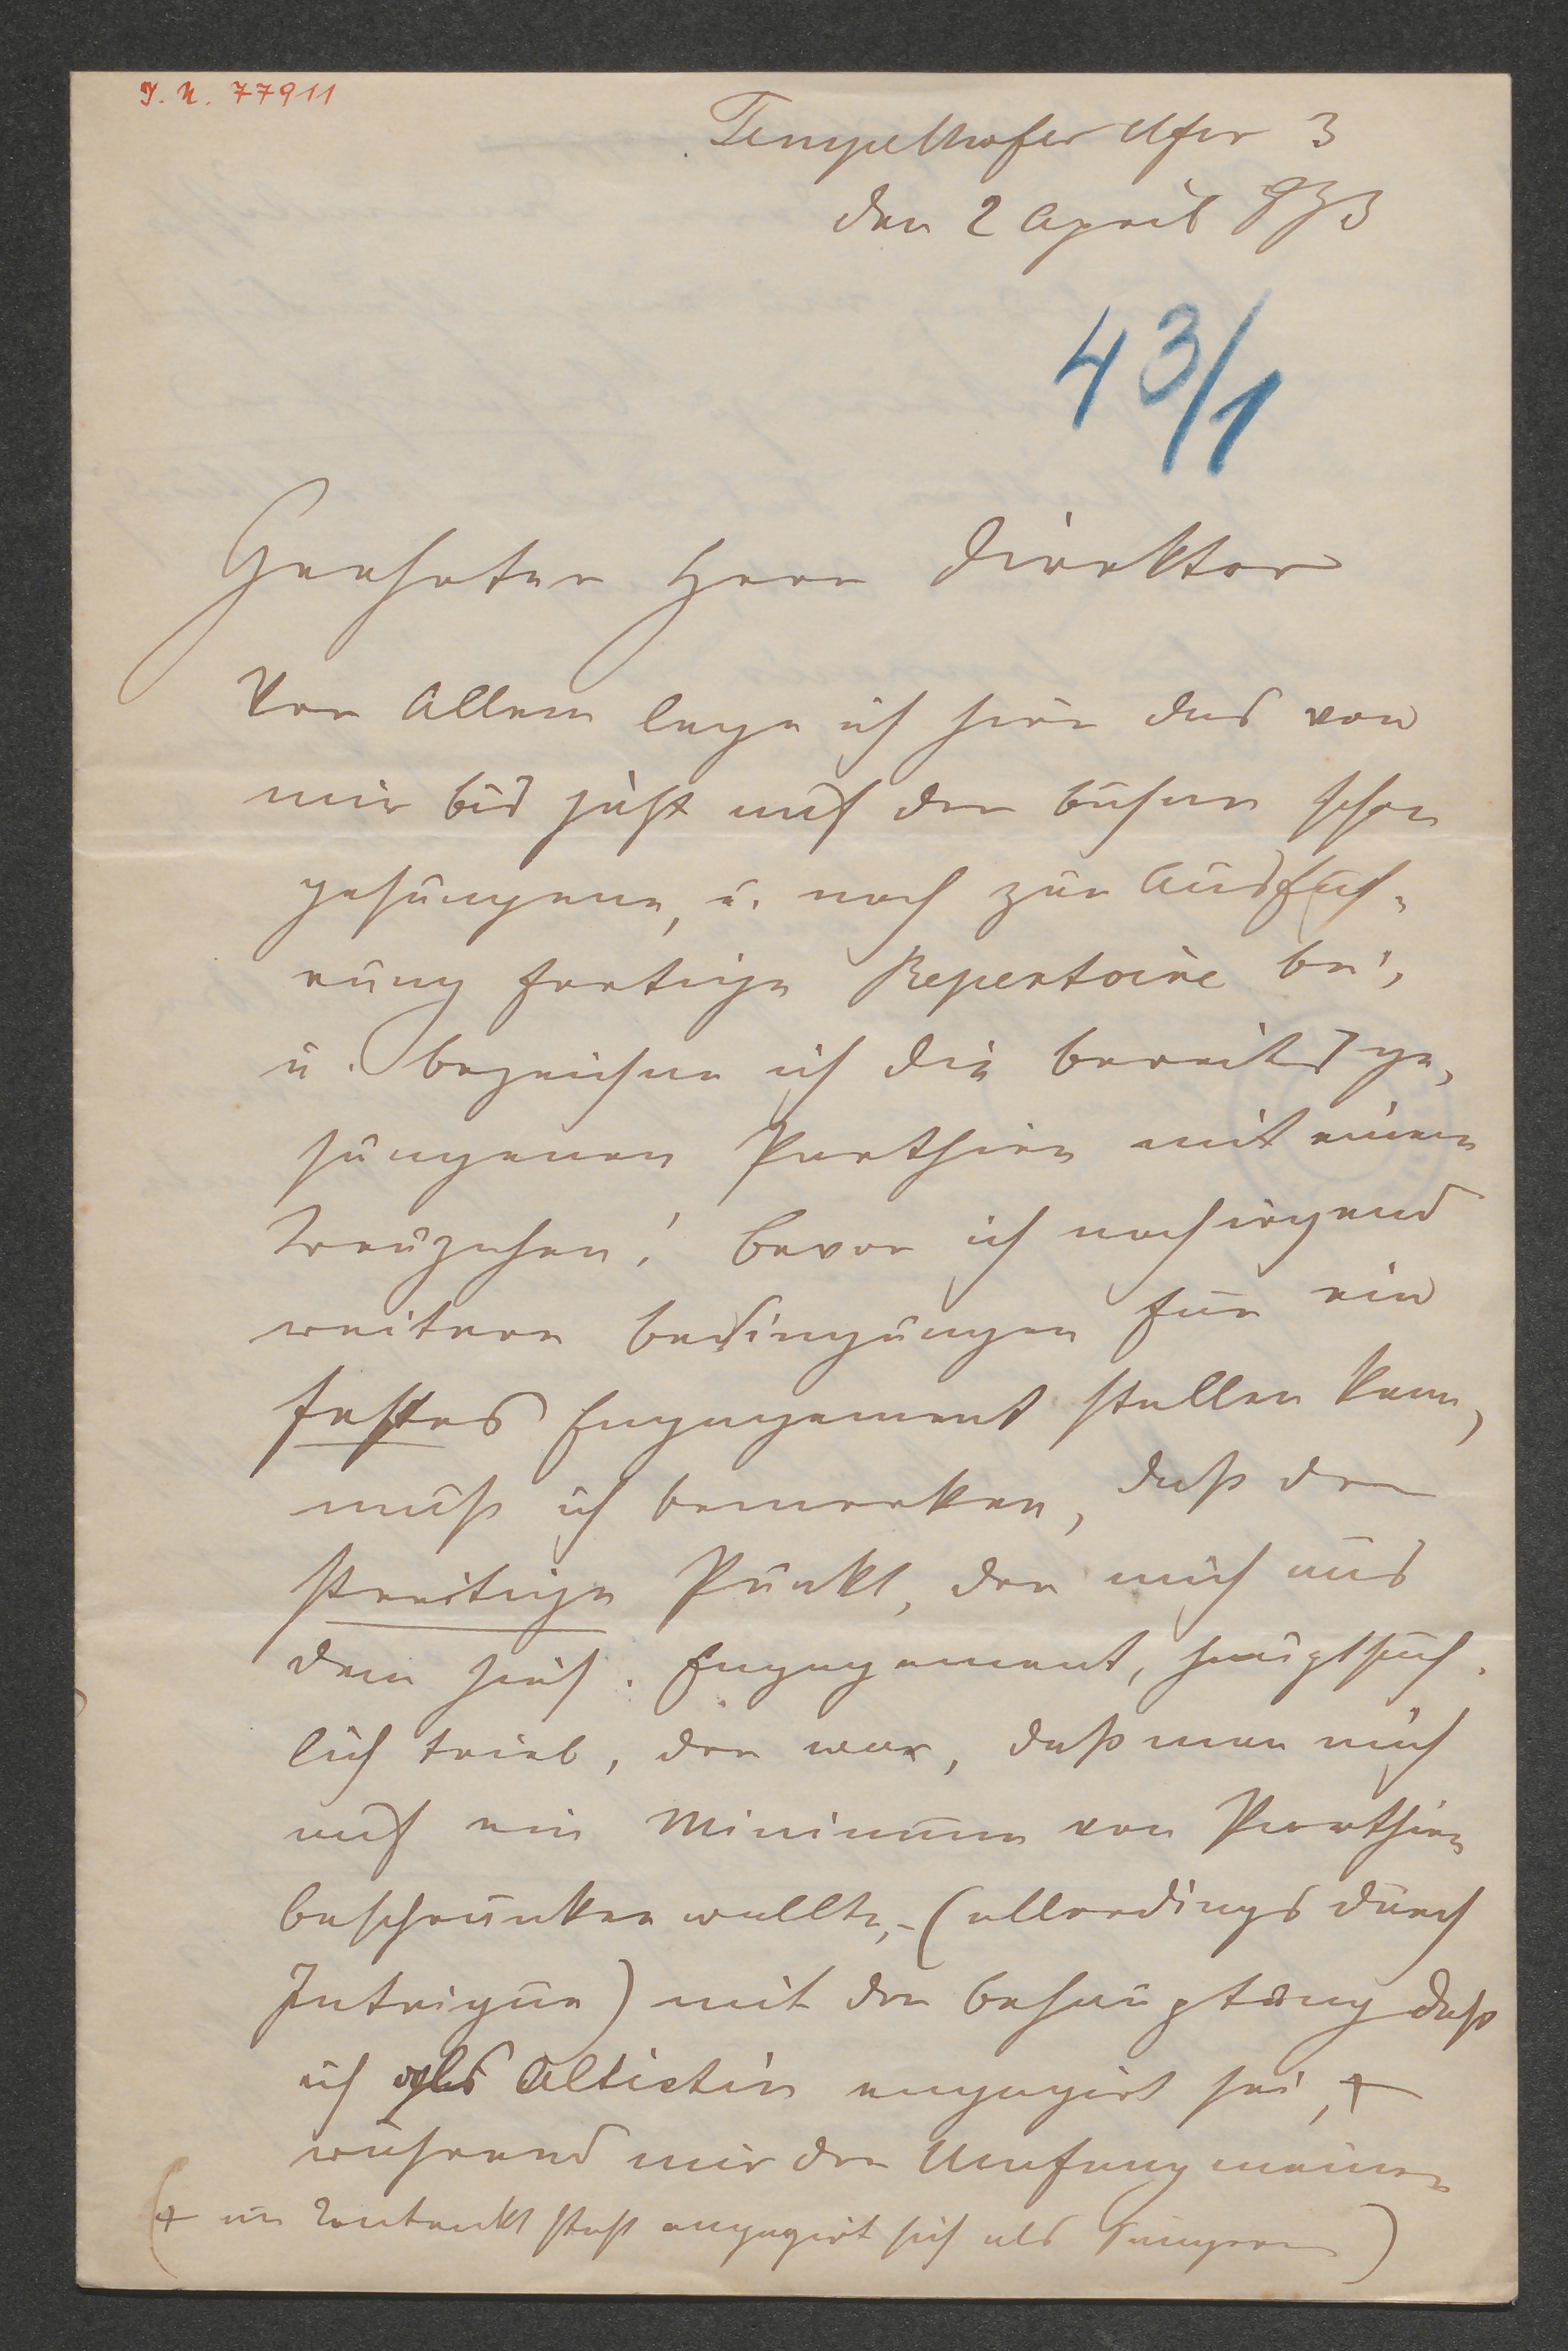 J. N. 77911
Tempelhofer Ufer 3
den 2 April 873
43/1
Geehrter Herr Direktor
Vor Allem lege ich hier das von
mir bis jetzt auf der Bühne schon
gesungene, u. noch zur Ausfüh-
rung fertige Repertoire bei,
u. bezeichne ich die bereits ge-
sungenen Parthien mit einem
Kreuzchen! Bevor ich noch irgend
weitere Bedingungen für ein
festes Engagement stellen kann,
muß ich bemerken, daß der
streitige Punkt, der mich aus
dem hies. Engagement, hauptsäch-
lich trieb, der war, daß man mich
auf ein Minimum von Parthien
beschränken wollte,-(allerdings durch
Intrigue) mit der Behauptung daß
ich als Altistin engagirt sei, +
während mir der Umfang meiner
(+ im Contrakt steht engagirt sich als Sängerin)